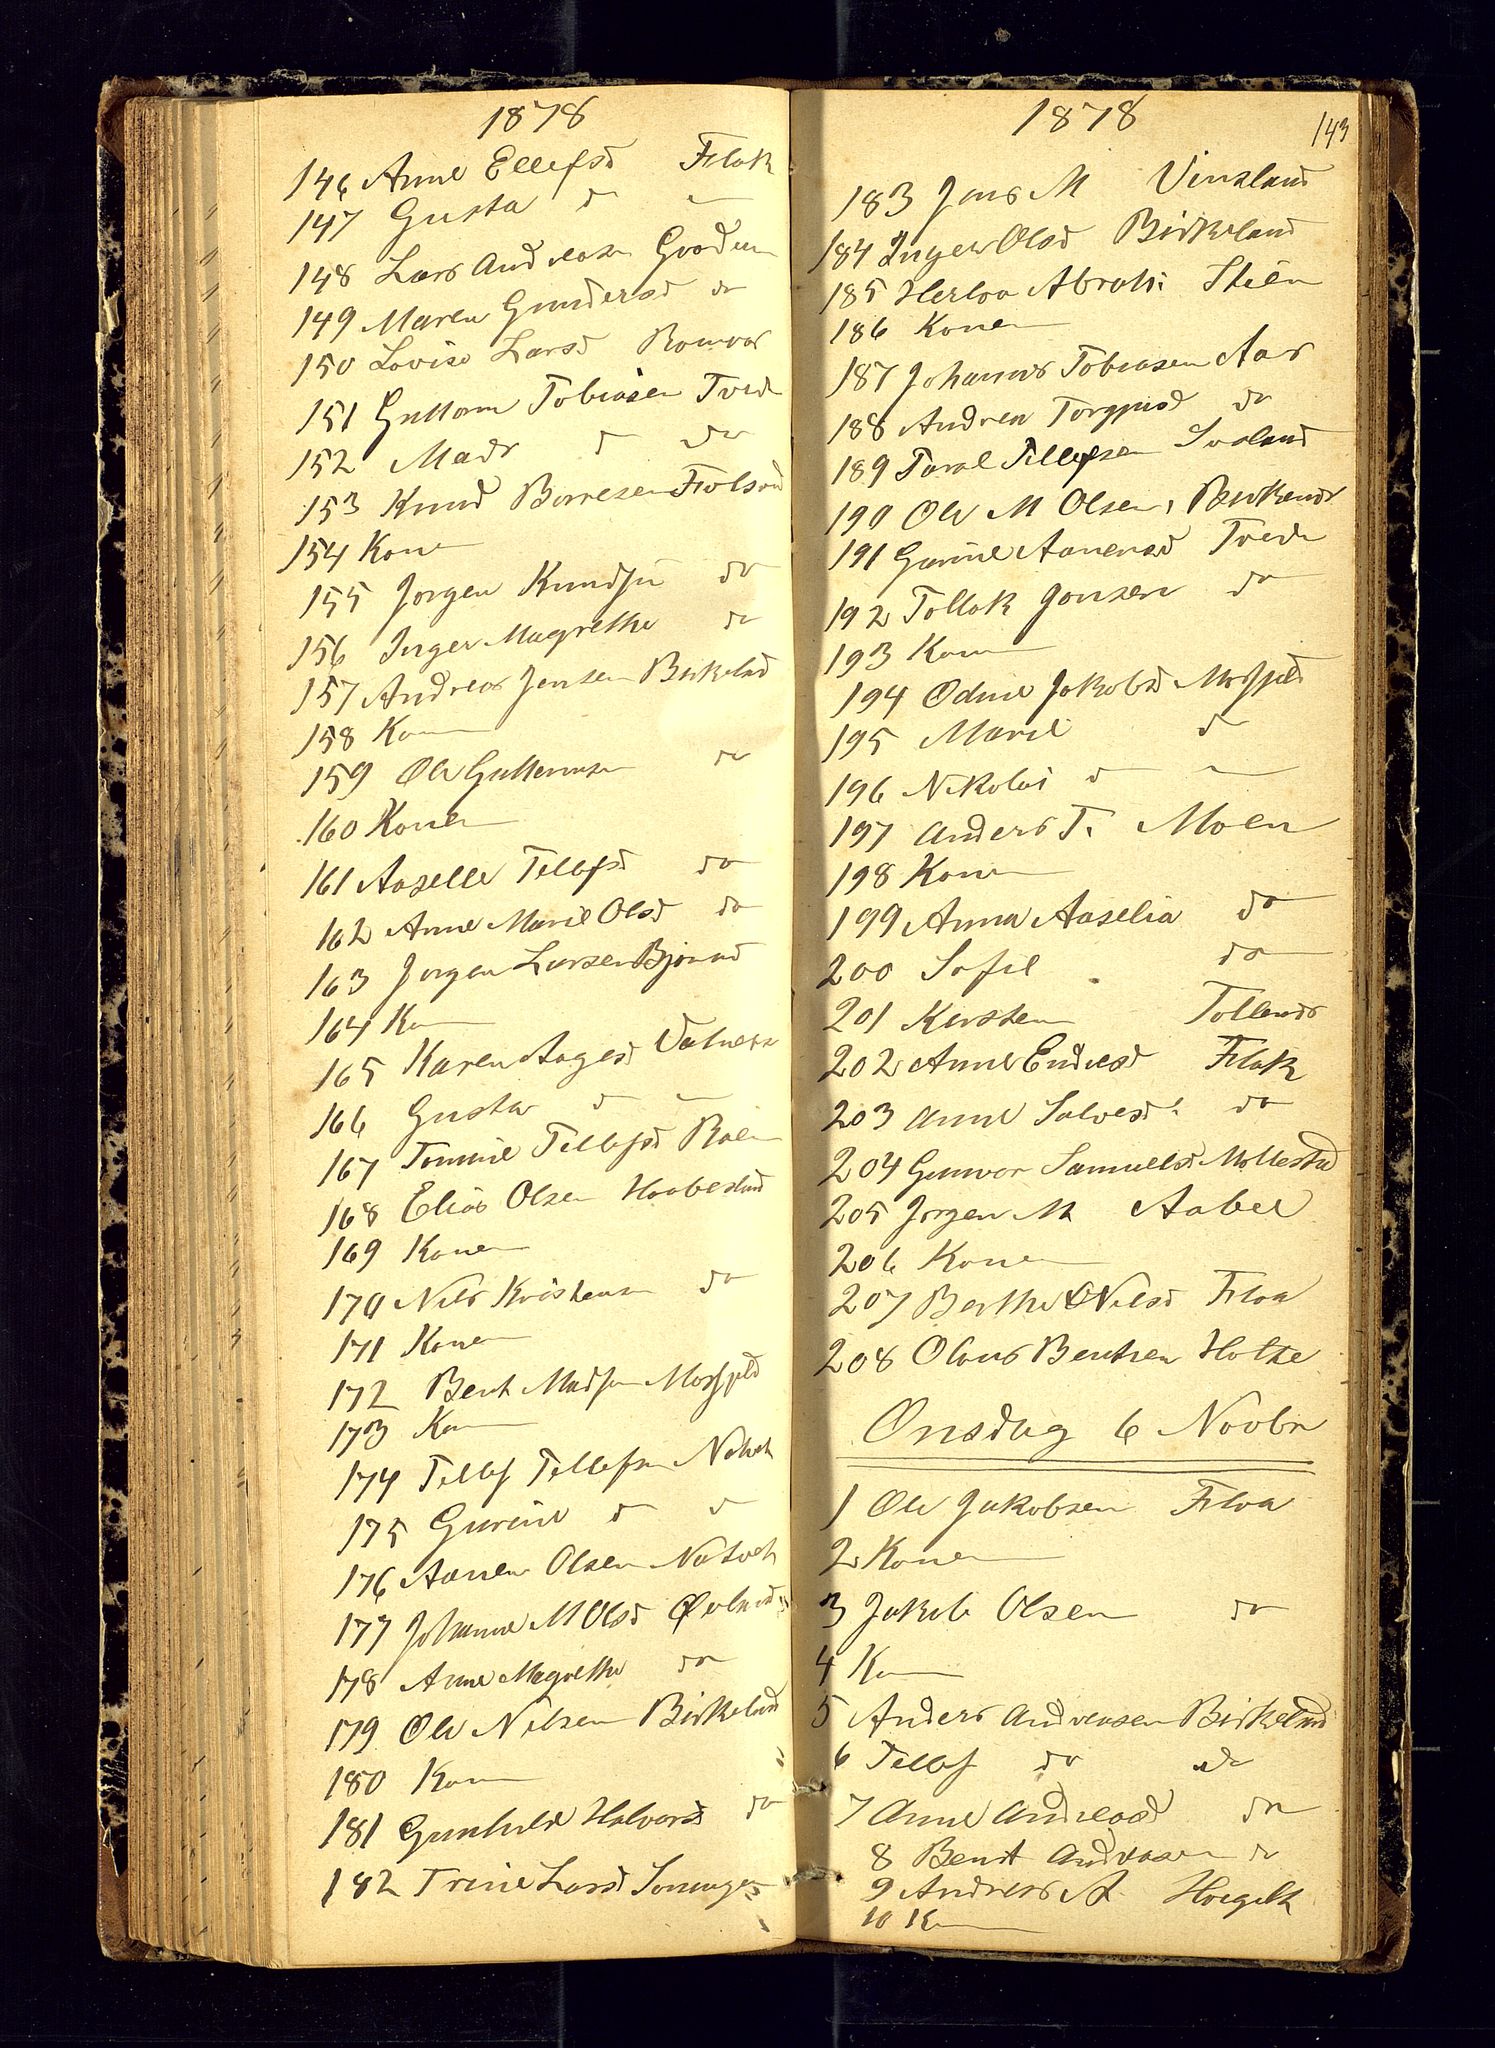 1878
146 Anne Ellefsd Flak
147 Gusta do —
148 Lars Andreasen Grødum
149 Maren Gundersd do
150 Lovise Larsd Romvas
151 Guttorm Tobiasen Tvede
152 Mads do do
153 Knud Borresen
154 Kone
155 Jorgen Knudsen do
156 Inger Magrethe do
157 Andreas Jensen Birkelad
158 Kone
159 Ole Guttormsen do
160 Konen
161 Aaselle Tellefsd do
162 Anne Marie Olsd do
163 Jorgen Larsen
164 Kone
165 Karen Aagesd Vatnet
166 Gusta do —
167 Tomine Tellefsd Roen
168 Elias Olsen Haabesland
169 Konen
170 Nils Kristensen do
171 Konen
172 Bent Madsen Mosfjeld
173 Kone
174 Tellef Tellefsen
175 Gurine do do
176 Aanen Olsen
177 Johanne M Olsd
178 Anne Magrethe do
179 Ole Nilsen Birkeland
180 Kone
181 Gunhild Halvorsd do
182 Trine Larsd
1878 143
183 Jens M Vinsland
184 Inger Olsd Birkeland
185 Herloa Abrah: Steen
186 Konen
187 Johannes Tobiasen Aas
188 Andrea Torgjusd do
189 Taral Tellefsen
190 Ole M Olsen, Birkenes
191 Gurine Aanensd Tvede
192 Tollak Jonsen do
193 Kone
194 Odine Jakobsd Mosfjeld
195 Marie do
196 Nikolai do —
197 Anders T. Moen
198 Konen
199 Anna Aaselia do
200 Sofie do
201 Kirsten Tollands
202 Anne Endresd Flak
203 Anne Salvesd. do
204 Gunvor Samuelsd Mollestad
205 Jorgen M Aabel
206 Konen
207 Berthe Nilsd Floa
208 Olaus Bentsen Holte
Onsdag 6 Novbr
1 Ole Jakobsen Floa
2 Konen
3 Jakob Olsen do
4 Kone
5 Anders Andreasen Birkeland
6 Tellef do do
7 Anne Andreasd do
8 Bent Andreasen do
9 Andreas A.
10 Kone